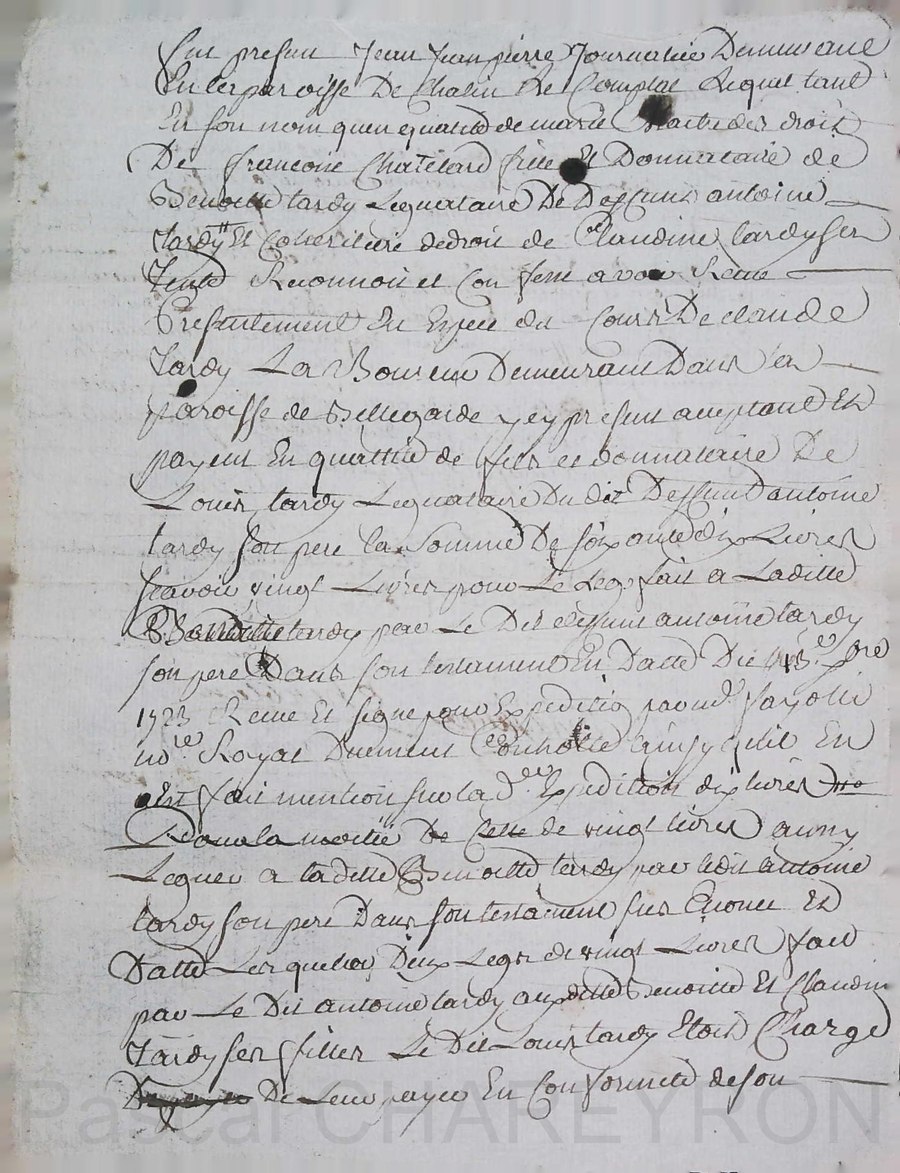 fut present Jean Jean pierre Journallié Demeurant
En la paroisse De Chalin Le Comptal Lequel tant
En son nom quen qualité de marie maitre des droit
De francoise Chatelard fille Et Donnataire de
Benoitte tardy Legnataire De Deffunt antoine
tardy Et Coheritiere de droit de Claudine tardy ser
Reconnoit et Confesse avoir Receu
Presentement En Espece du Cours De claude
tardy La Boureur Demeurant Dans la
paroisse de Bellegarde yey present acceptant Et
payent En quallité de fils et donnataire De
Louis tardy Legnataire Du dit Deffunt antoine
tardy son pere la Somme De soixante dix Livres
scavoir vingt Livres pour Le Leg fait a Laditte
Benoitte tardy par Le Dit deffunt antoine tardy
son pere Dans son testament En Datte Du 13e
1723 Receu Et signé pour Expeditio par md Jayolin
nore Royal Duement Controllé ainsy quil En
est fait mention sur la de Expedition dix livres
Pour la moitié De Celle de vingt livres aussy
Leguer a laditte Benoitte tardy par ledit antoine
tardy son pere Dans son testament sus Enoncé Et
Datté Lesquelles Deux Legs de vingt Livres fait
par Le Dit antoine tardy auxditte Benoitte Et Claudin
Tardy ses filles Le Dit Louis tardy Etoit Chargé
De Leur payer En Conformité de son
Pascal CHAREYRON